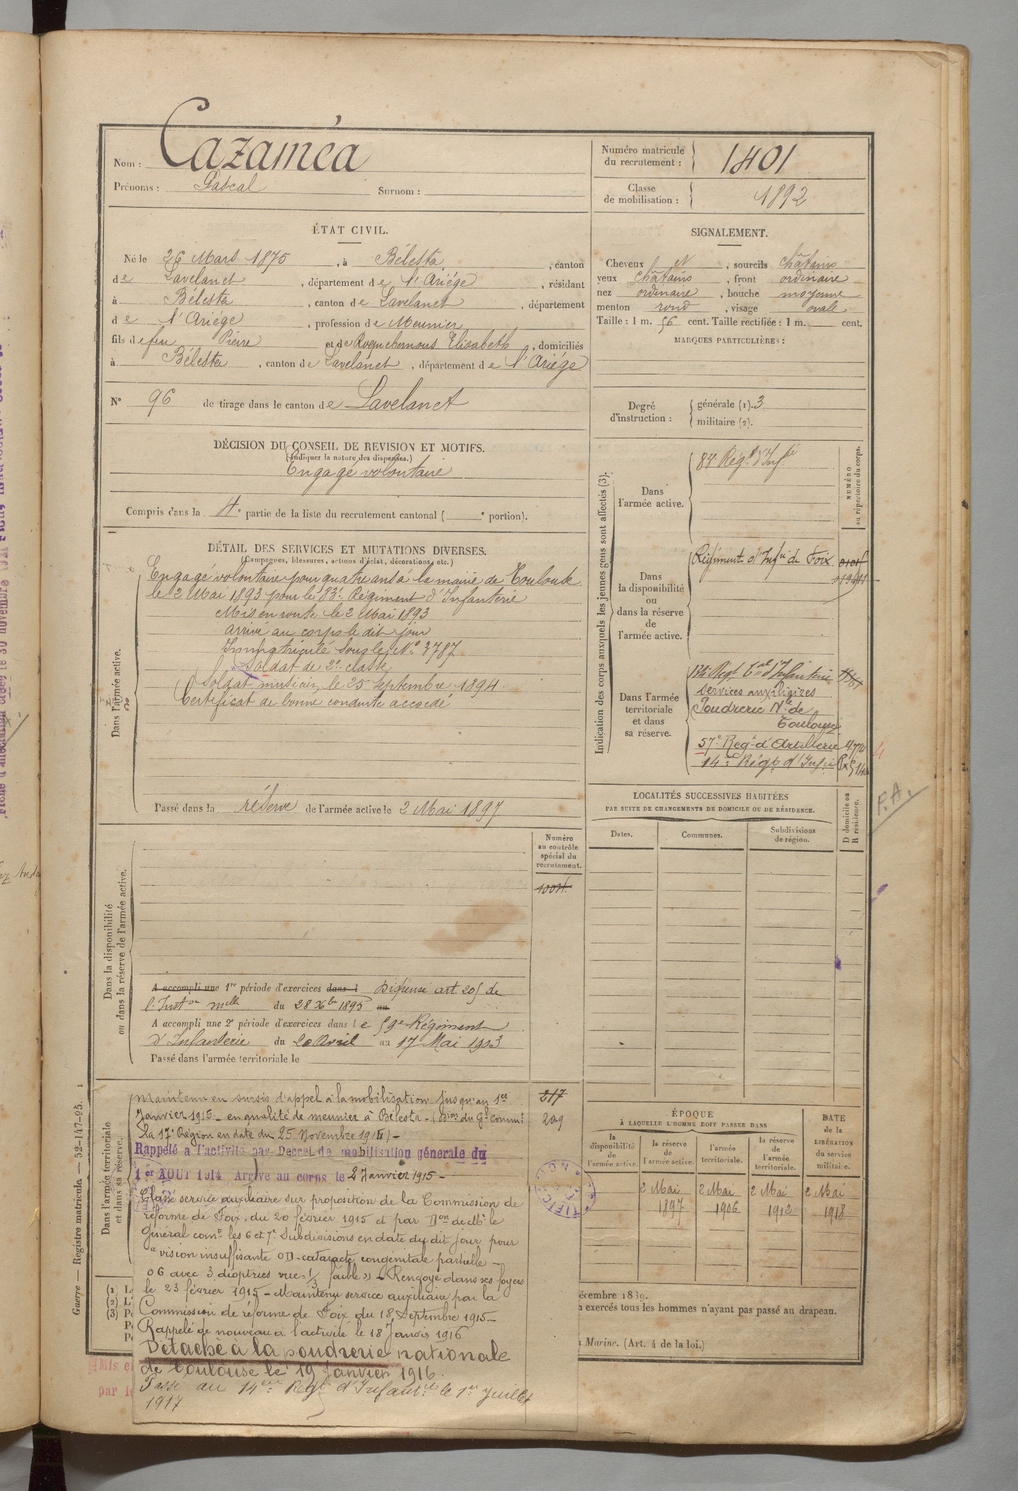 Nom : Cazaméa
Prénoms : Pascal Surnom :
Numéro matricule du recrutement : 1401
Classe de mobilisation : 1892
ÉTAT CIVIL.
Né le 26 Mars 1870, à Bélesta, canton
de Lavelanet, département de l'Ariége, résidant
à Bélesta, canton de Lavelanet, département
de l'Ariége, profession de Meunier
fils de feu Pierre et de Roquebernous Elisabeth, domiciliés
à Bélesta, canton de Lavelanet, département de l'Ariége
N° 96 de tirage dans le canton de Lavelanet
SIGNALEMENT.
Cheveux et, sourcils châtains
yeux Châtains, front ordinaire
nez ordinaire, bouche moyenne
menton rond, visage ovale
Taille : 1 m. 56 cent. Taille rectifiée : 1 m. cent.
MARQUES PARTICULIÈRES :
Degré d'instruction : générale (1). 3
militaire (2).
DÉCISION DU CONSEIL DE REVISION ET MOTIFS.
(Indiquer la nature des dispenses.)
Engagé volontaire
Compris dans la 4e partie de la liste du recrutement cantonal ( e portion).
DÉTAIL DES SERVICES ET MUTATIONS DIVERSES.
(Campagnes, blessures, actions d'éclat, décorations, etc.)
Dans l'armée active.
Engagé volontaire pour quatre ans à la mairie de Toulouse
le 2 Mai 1893 pour le 83e Régiment d'Infanterie
Mis en route le 2 Mai 1893
Arrivé au corps le dit jour
Immatriculé sous le N° 3787
Soldat de 2e classe
Soldat musicien, le 25 Septembre 1894
Certificat de bonne conduite accordé
Passé dans la réserve de l'armée active le 2 Mai 1897
Indication des corps auxquels les jeunes gens sont affectés (3).
NUMÉRO au répertoire du corps.
Dans l'armée active.
Dans la disponibilité ou dans la réserve de l'armée active.
Régiment d'Infie de Foix
Dans l'armée territoriale et dans sa réserve.
services auxiliaires
Poudrerie Nle de
Toulouse
57e Reg. d'Artillerie
14e Régt d'Infie
LOCALITÉS SUCCESSIVES HABITÉES
PAR SUITE DE CHANGEMENTS DE DOMICILE OU DE RÉSIDENCE.
Dates. Communes. Subdivisions de région. D domicile ou R résidence.
F.A.
Numéro au contrôle spécial du recrutement.
Dans la disponibilité ou dans la réserve de l'armée active.
A accompli une 1re période d'exercices dans l Dispensé art 205 de
l'Inston melle du 28 Xbre 1895 au
A accompli une 2e période d'exercices dans le 59e Régiment
d'Infanterie du 20 Avril au 17 Mai 1903
Passé dans l'armée territoriale le
Dans l'armée territoriale et dans sa réserve.
217
209
Maintenu en sursis d'appel à la mobilisation jusqu'au 1er
Janvier 1915 - en qualité de meunier à Bélesta - (Dion du Gl Commt
la 17e Région en date du 25 Novembre 1914) -
Rappelé à l'activité par Décret de mobilisation générale du
1er AOUT 1914 Arrivé au corps le 2 Janvier 1915 -
Classé service auxiliaire sur proposition de la Commission de
réforme de Foix, du 20 février 1915 et par Don dudt le
Général comt les 6 et 7e Subdivisions en date du dit jour pour
"vision insuffisante OD - cataracte congénitale partielle -
OG avec 3 dioptries vue 1/3 faible" - Renvoyé dans ses foyers
le 23 février 1915 - Maintenu service auxiliaire par la
Commission de réforme de Foix du 18 Septembre 1915 -
Rappelé de nouveau à l'activité le 18 Janvier 1916
Détaché à la poudrerie nationale
de Toulouse le 19 Janvier 1916.
Passé au 14ème Régt d'Infanterie le 1er Juillet
1917
ÉPOQUE
À LAQUELLE L'HOMME DOIT PASSER DANS
la disponibilité de l'armée active. la réserve de l'armée active. l'armée territoriale. la réserve de l'armée territoriale. DATE de la LIBÉRATION du service militaire.
2 Mai 1897 2 Mai 1906 2 Mai 1912 2 Mai 1918
exercés tous les hommes n'ayant pas passé au drapeau.
Marine. (Art. 4 de la loi.)
Guerre — Registre matricule. — 52-147-95.